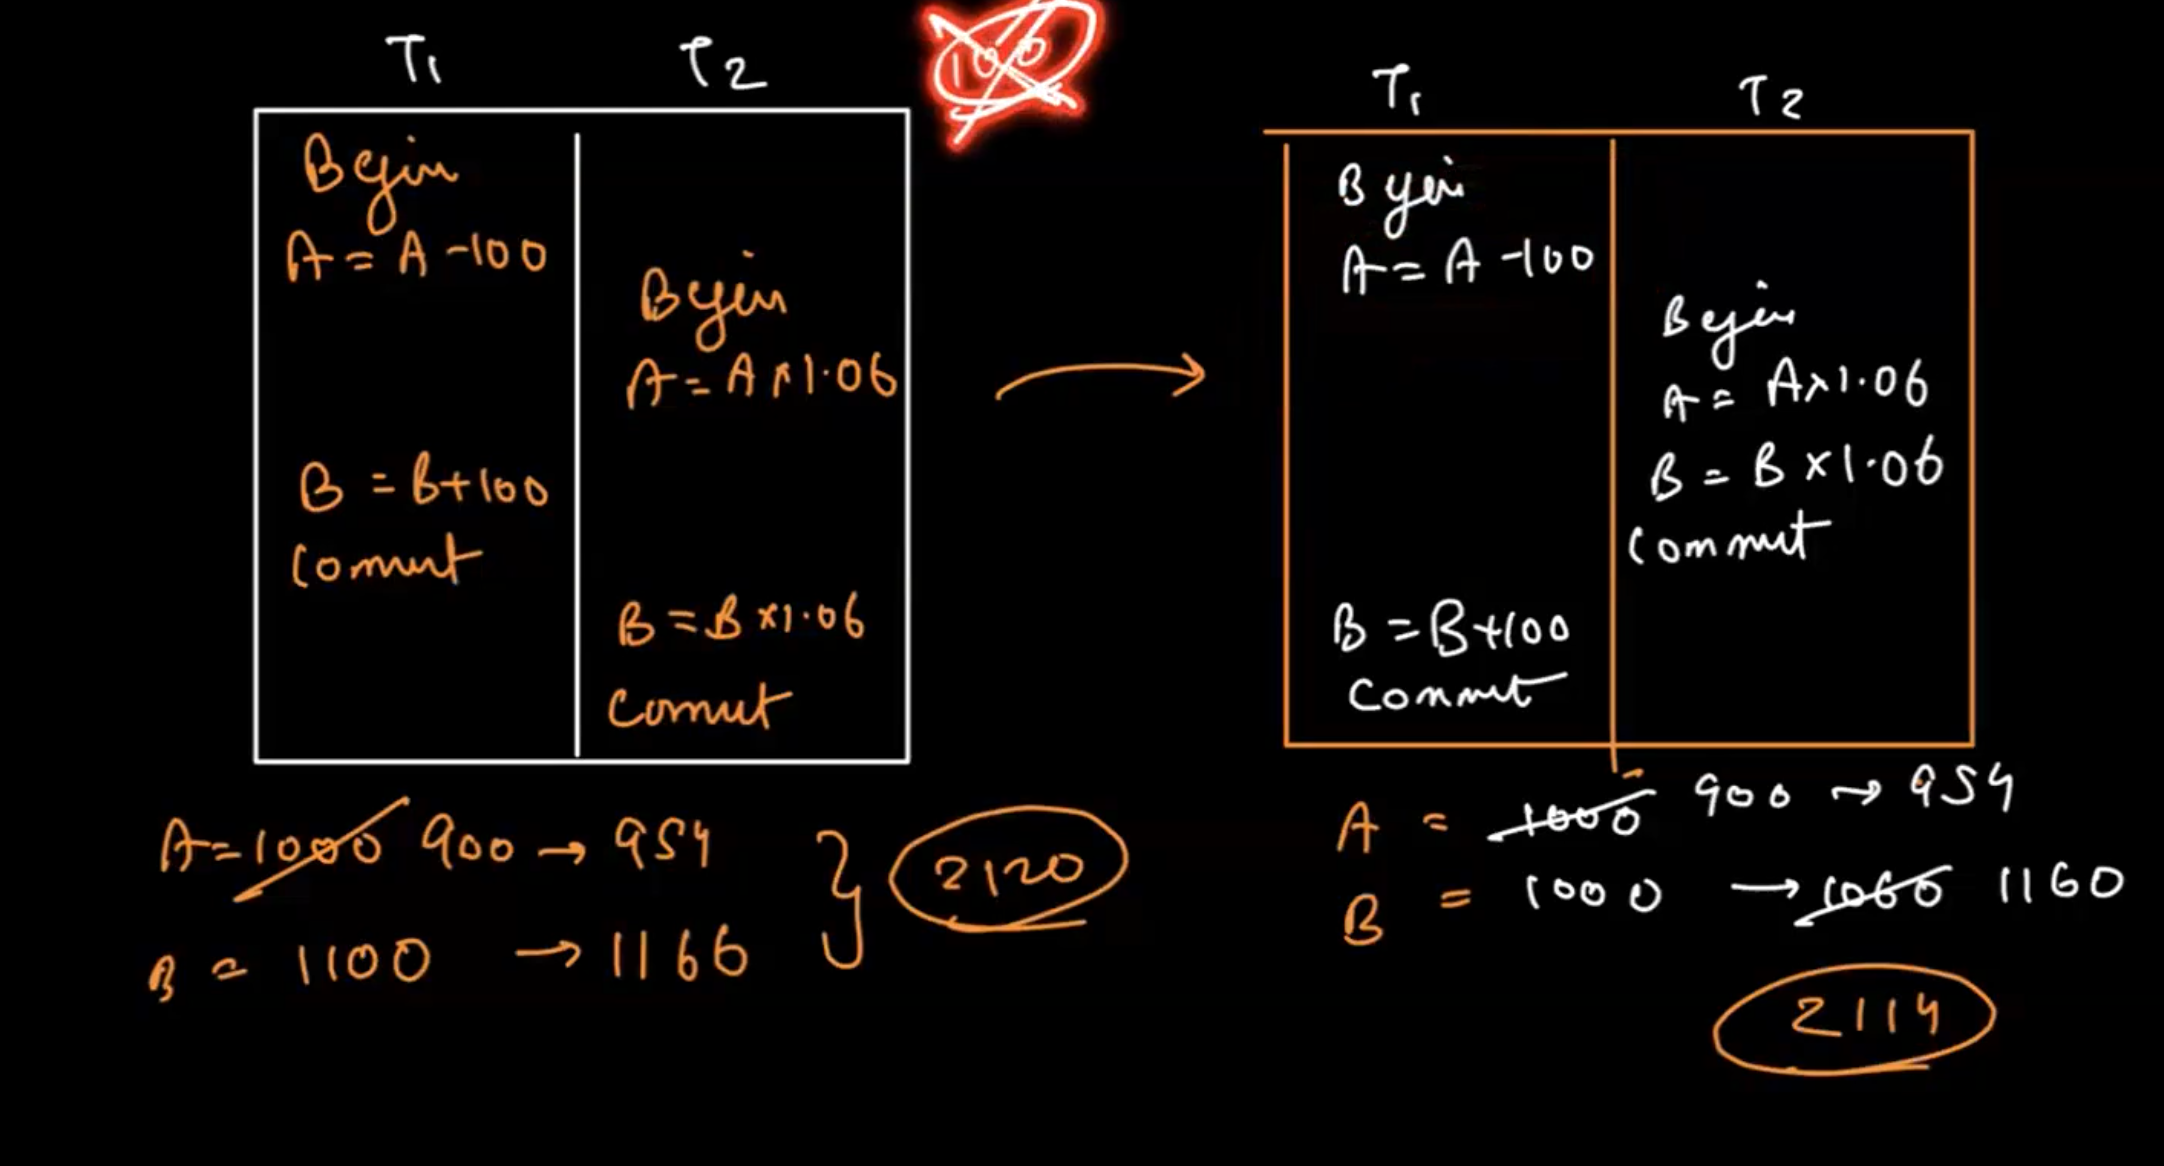 T1 T2
100
Begin
A = A - 100
Begin
A = A × 1.06
B = B + 100
Commit
B = B × 1.06
Commit
A = 1000 900 → 954
B = 1100 → 1166
} 2120
→
T1 T2
Begin
A = A - 100
Begin
A = A × 1.06
B = B × 1.06
Commit
B = B + 100
Commit
A = 1000 900 → 954
B = 1000 → 1060 1160
2114